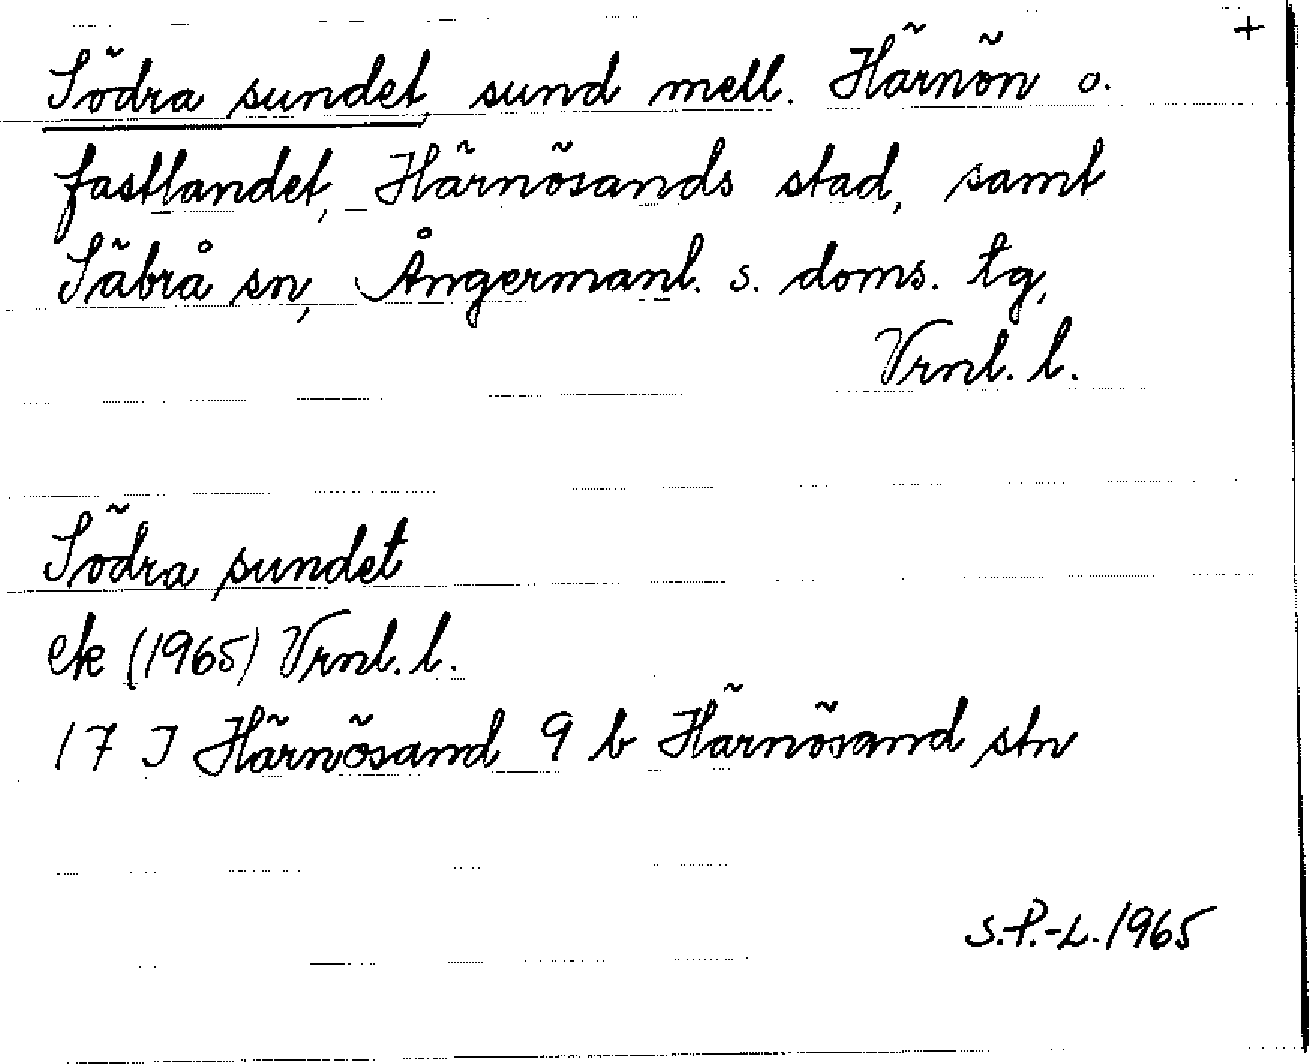 +
Södra sundet, sund mell. Härnön o.
fastlandet, Härnösands stad, samt
Säbrå sn, Ångermanl. s. doms. tg,
Vrnl. l.
Södra sundet
ek (1965) Vrnl. l.
17 J Härnösand 9 b Härnösand stn
S.P.-L. 1965